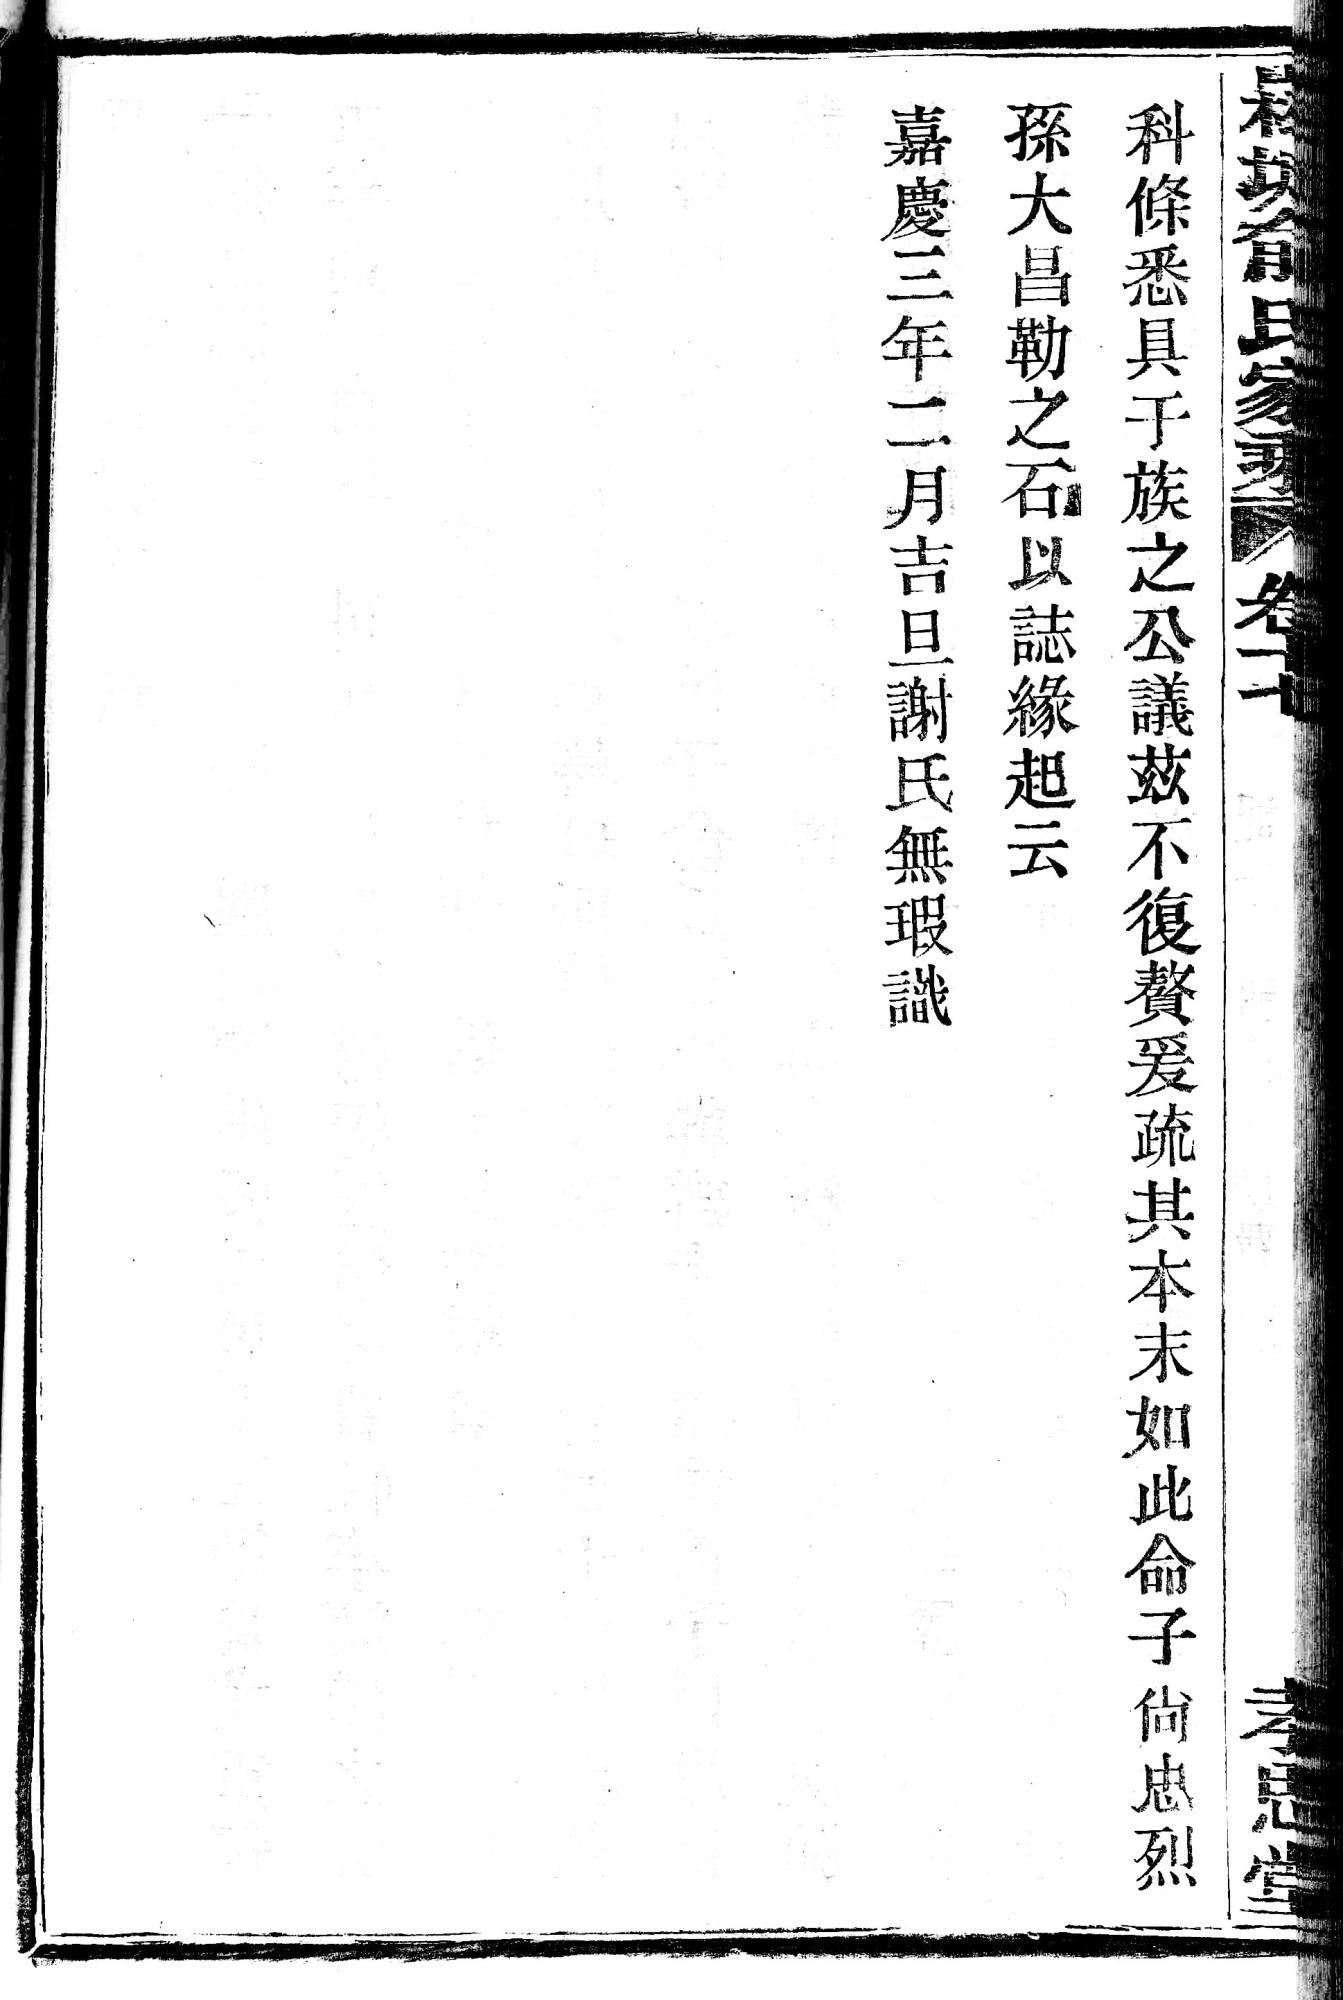 俞氏家乘 卷十七 孝思堂
科條悉具于族之公議茲不復贅爰疏其本末如此命子尙忠烈
孫大昌勒之石以誌緣起云
嘉慶三年二月吉旦謝氏無瑕識